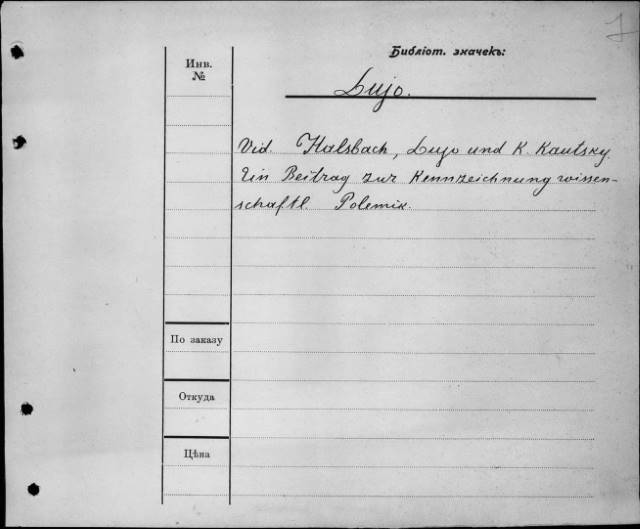 Библіот. значекъ:
Инв.
№
Lujo.
Vid. Halsbach, Lujo und K. Kautsky.
Ein Beitrag zur Kennzeichnung wissen-
schaftl. Polemik.
По заказу
Откуда
Цѣна